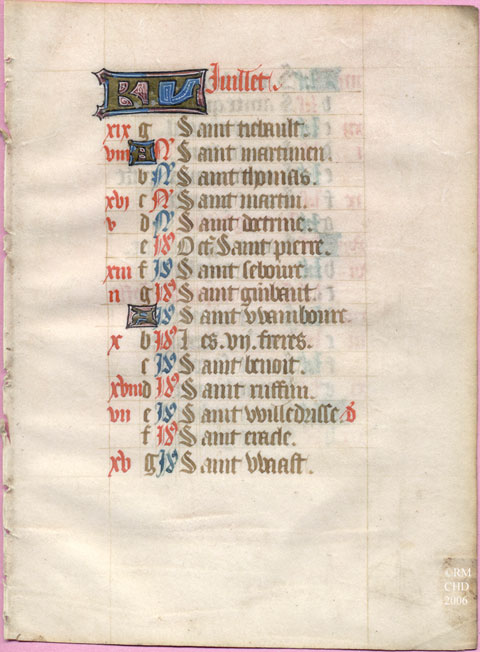 KL Juillet.
xix g Saint tiebault.
viii A N Saint martinien.
b N Saint thomas.
xvi c N Saint martin.
v d N Saint doctrine.
e N Oct. Saint pierre.
xiii f Id Saint seboure.
ii g Id Saint guibaut.
A Id Saint wamboure.
x b Id Les .vii. freres.
c Id Saint benoit.
xviii d Id Saint ruffin.
vii e Id Saint willedrisse. D
f Id Saint eracle.
xv g Id Saint vvaast.
©RM
CHD
2006